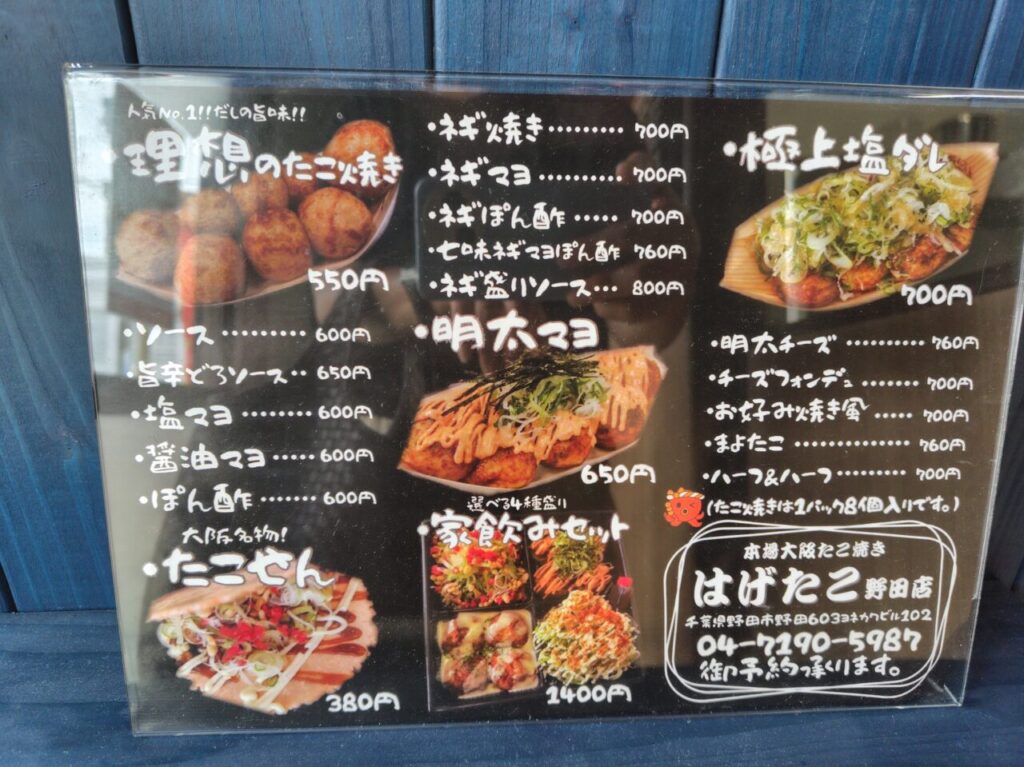 人気No.1!!だしの旨味!!
・理想のたこ焼き
550円
・ソース ········· 600円
・旨辛どろソース·· 650円
・塩マヨ ········ 600円
・醤油マヨ ····· 600円
・ぽん酢 ······ 600円
大阪名物!
・たこせん
380円
・ネギ焼き ·········· 700円
・ネギマヨ ·········· 700円
・ネギぽん酢 ····· 700円
・七味ネギマヨぽん酢 760円
・ネギ盛りソース··· 800円
・明太マヨ
650円
選べる4種盛り
・家飲みセット
1400円
・極上塩ダレ
700円
・明太チーズ ··········· 760円
・チーズフォンデュ ········ 700円
・お好み焼き風 ····· 700円
・まよたこ ············ 760円
・ハーフ&ハーフ ········· 700円
(たこ焼きは1パック8個入りです。)
本場大阪たこ焼き
はげたこ 野田店
千葉県野田市野田603ヨネカワビル102
04-7190-5987
御予約承ります。